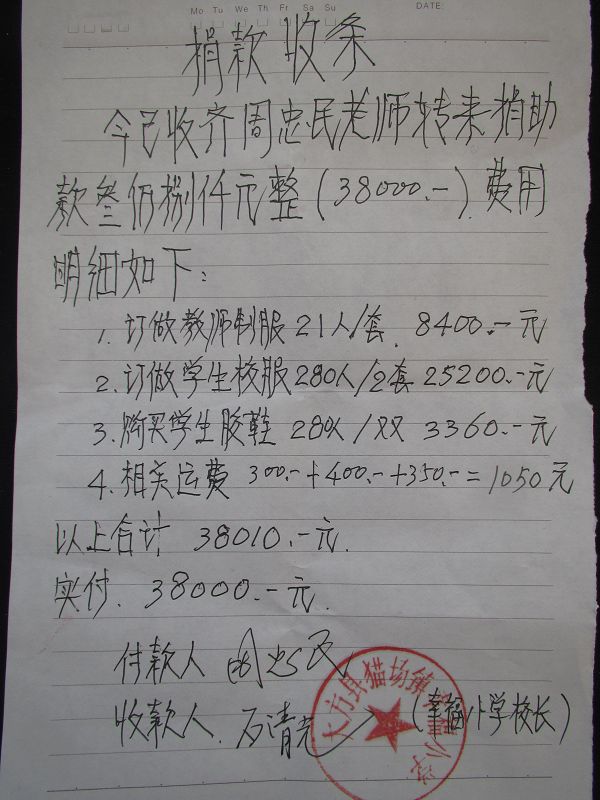 Mo Tu We Th Fr Sa Su
DATE:
捐款收条
今已收齐周忠民老师转来捐助
款叁佰捌仟元整(38000.-).费用
明细如下:
1. 订做教师制服 21人/套. 8400.-元
2. 订做学生校服280人/2套 25200.-元
3. 购买学生胶鞋 280人/双 3360.-元
4. 相关运费 300.-+400.-+350.-=1050元
以上合计 38010.-元.
实付. 38000.-元.
付款人 周忠民
收款人. 石清光 (幸福小学校长)
大方县猫场镇幸福小学